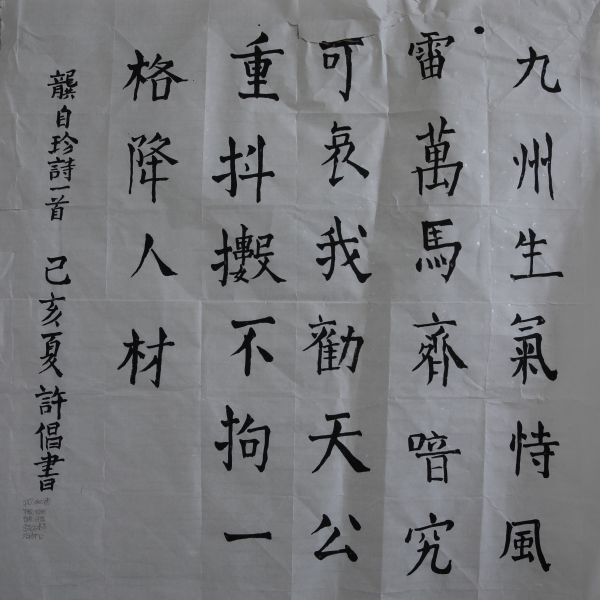 九州生氣恃風
雷萬馬齊喑究
可哀我勸天公
重抖擻不拘一
格降人材
龔自珍詩一首 己亥夏 許倡書